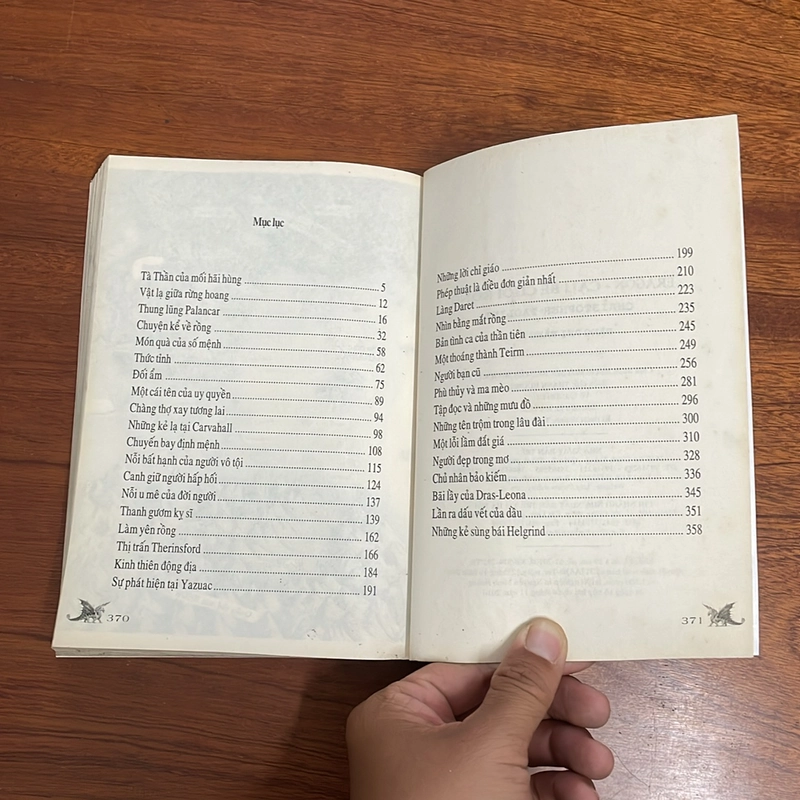 Mục lục
Tà Thần của mối hãi hùng 5
Vật lạ giữa rừng hoang 12
Thung lũng Palancar 16
Chuyện kể về rồng 32
Món quà của số mệnh 58
Thức tỉnh 62
Đối ẩm 75
Một cái tên của uy quyền 89
Chàng thợ xay tương lai 94
Những kẻ lạ tại Carvahall 98
Chuyến bay định mệnh 108
Nỗi bất hạnh của người vô tội 115
Canh giữ người hấp hối 124
Nỗi u mê của đời người 137
Thanh gươm kỵ sĩ 139
Làm yên rồng 162
Thị trấn Therinsford 166
Kinh thiên động địa 184
Sự phát hiện tại Yazuac 191
370
Những lời chỉ giáo 199
Phép thuật là điều đơn giản nhất 210
Làng Daret 223
Nhìn bằng mắt rồng 235
Bản tình ca của thần tiên 245
Một thoáng thành Teirm 249
Người bạn cũ 256
Phù thủy và ma mèo 281
Tập đọc và những mưu đồ 296
Những tên trộm trong lâu đài 300
Một lỗi lầm đắt giá 310
Người đẹp trong mơ 328
Chủ nhân bảo kiếm 336
Bãi lầy của Dras-Leona 345
Lần ra dấu vết của dầu 351
Những kẻ sùng bái Helgrind 358
371